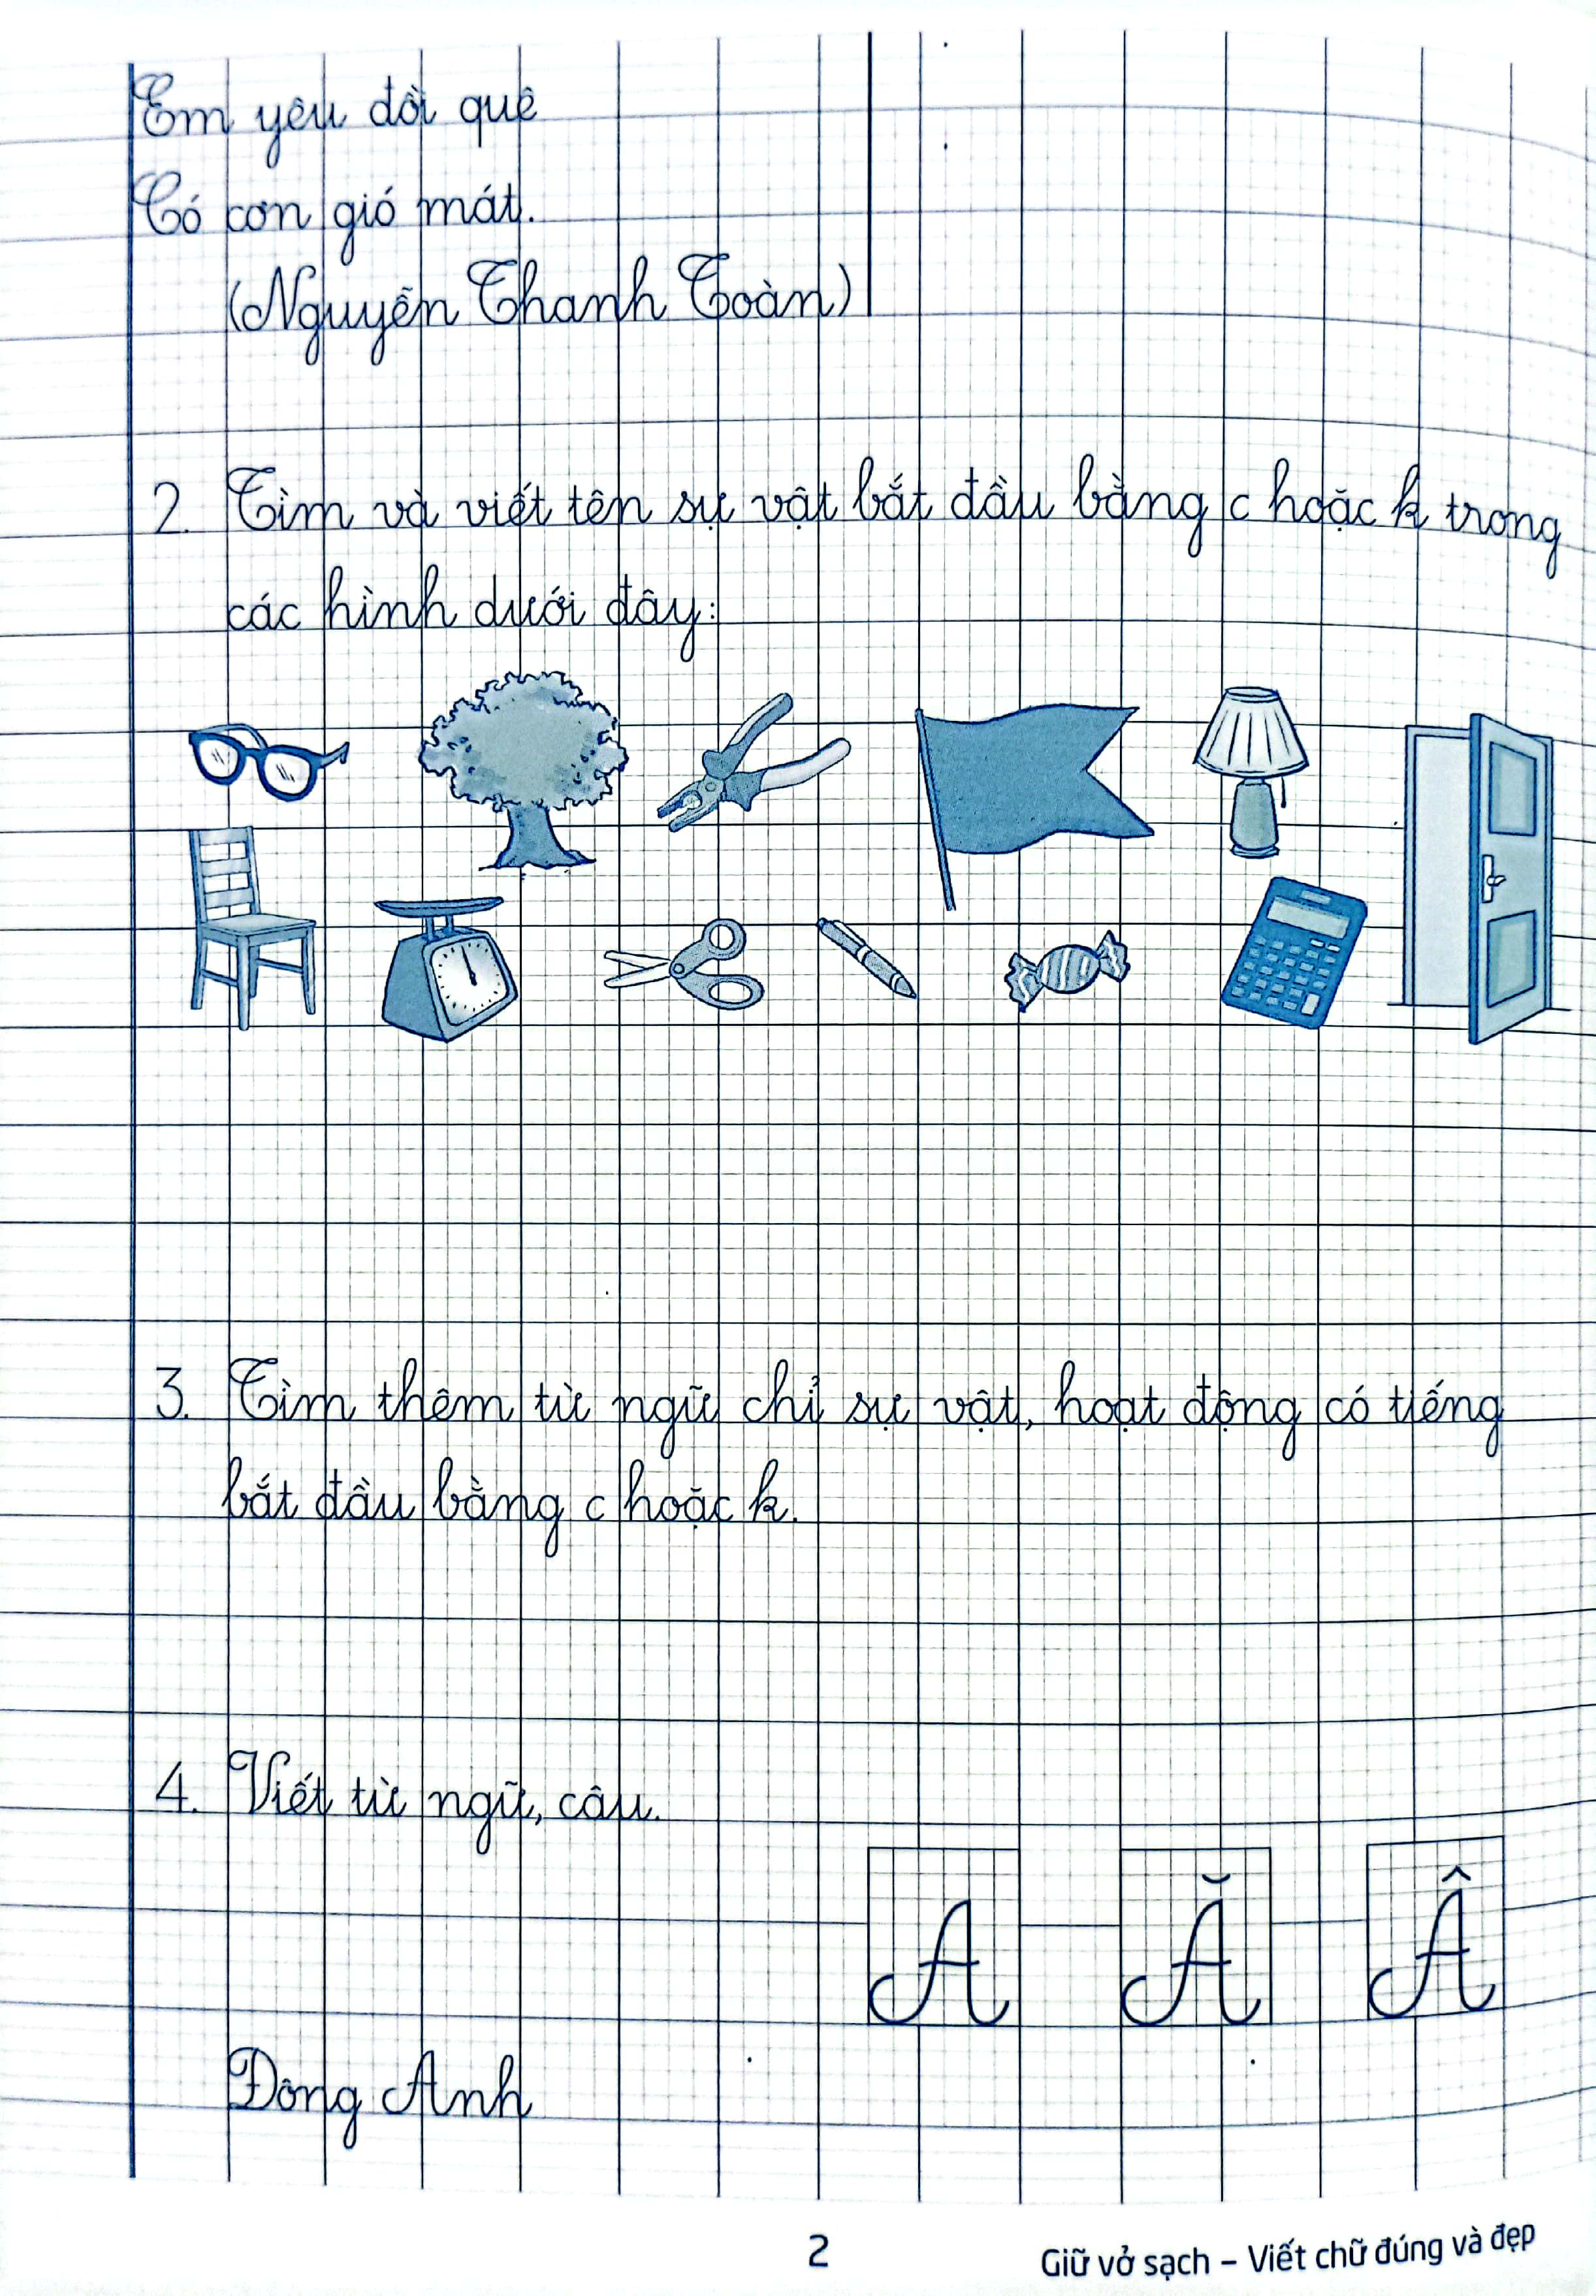 Em yêu đồi quê
Có cơn gió mát.
(Nguyễn Thanh Toàn)
2. Tìm và viết tên sự vật bắt đầu bằng c hoặc k trong
các hình dưới đây:
3. Tìm thêm từ ngữ chỉ sự vật, hoạt động có tiếng
bắt đầu bằng c hoặc k.
4. Viết từ ngữ, câu.
A Ă Â
Đông Anh
2
Giữ vở sạch – Viết chữ đúng và đẹp